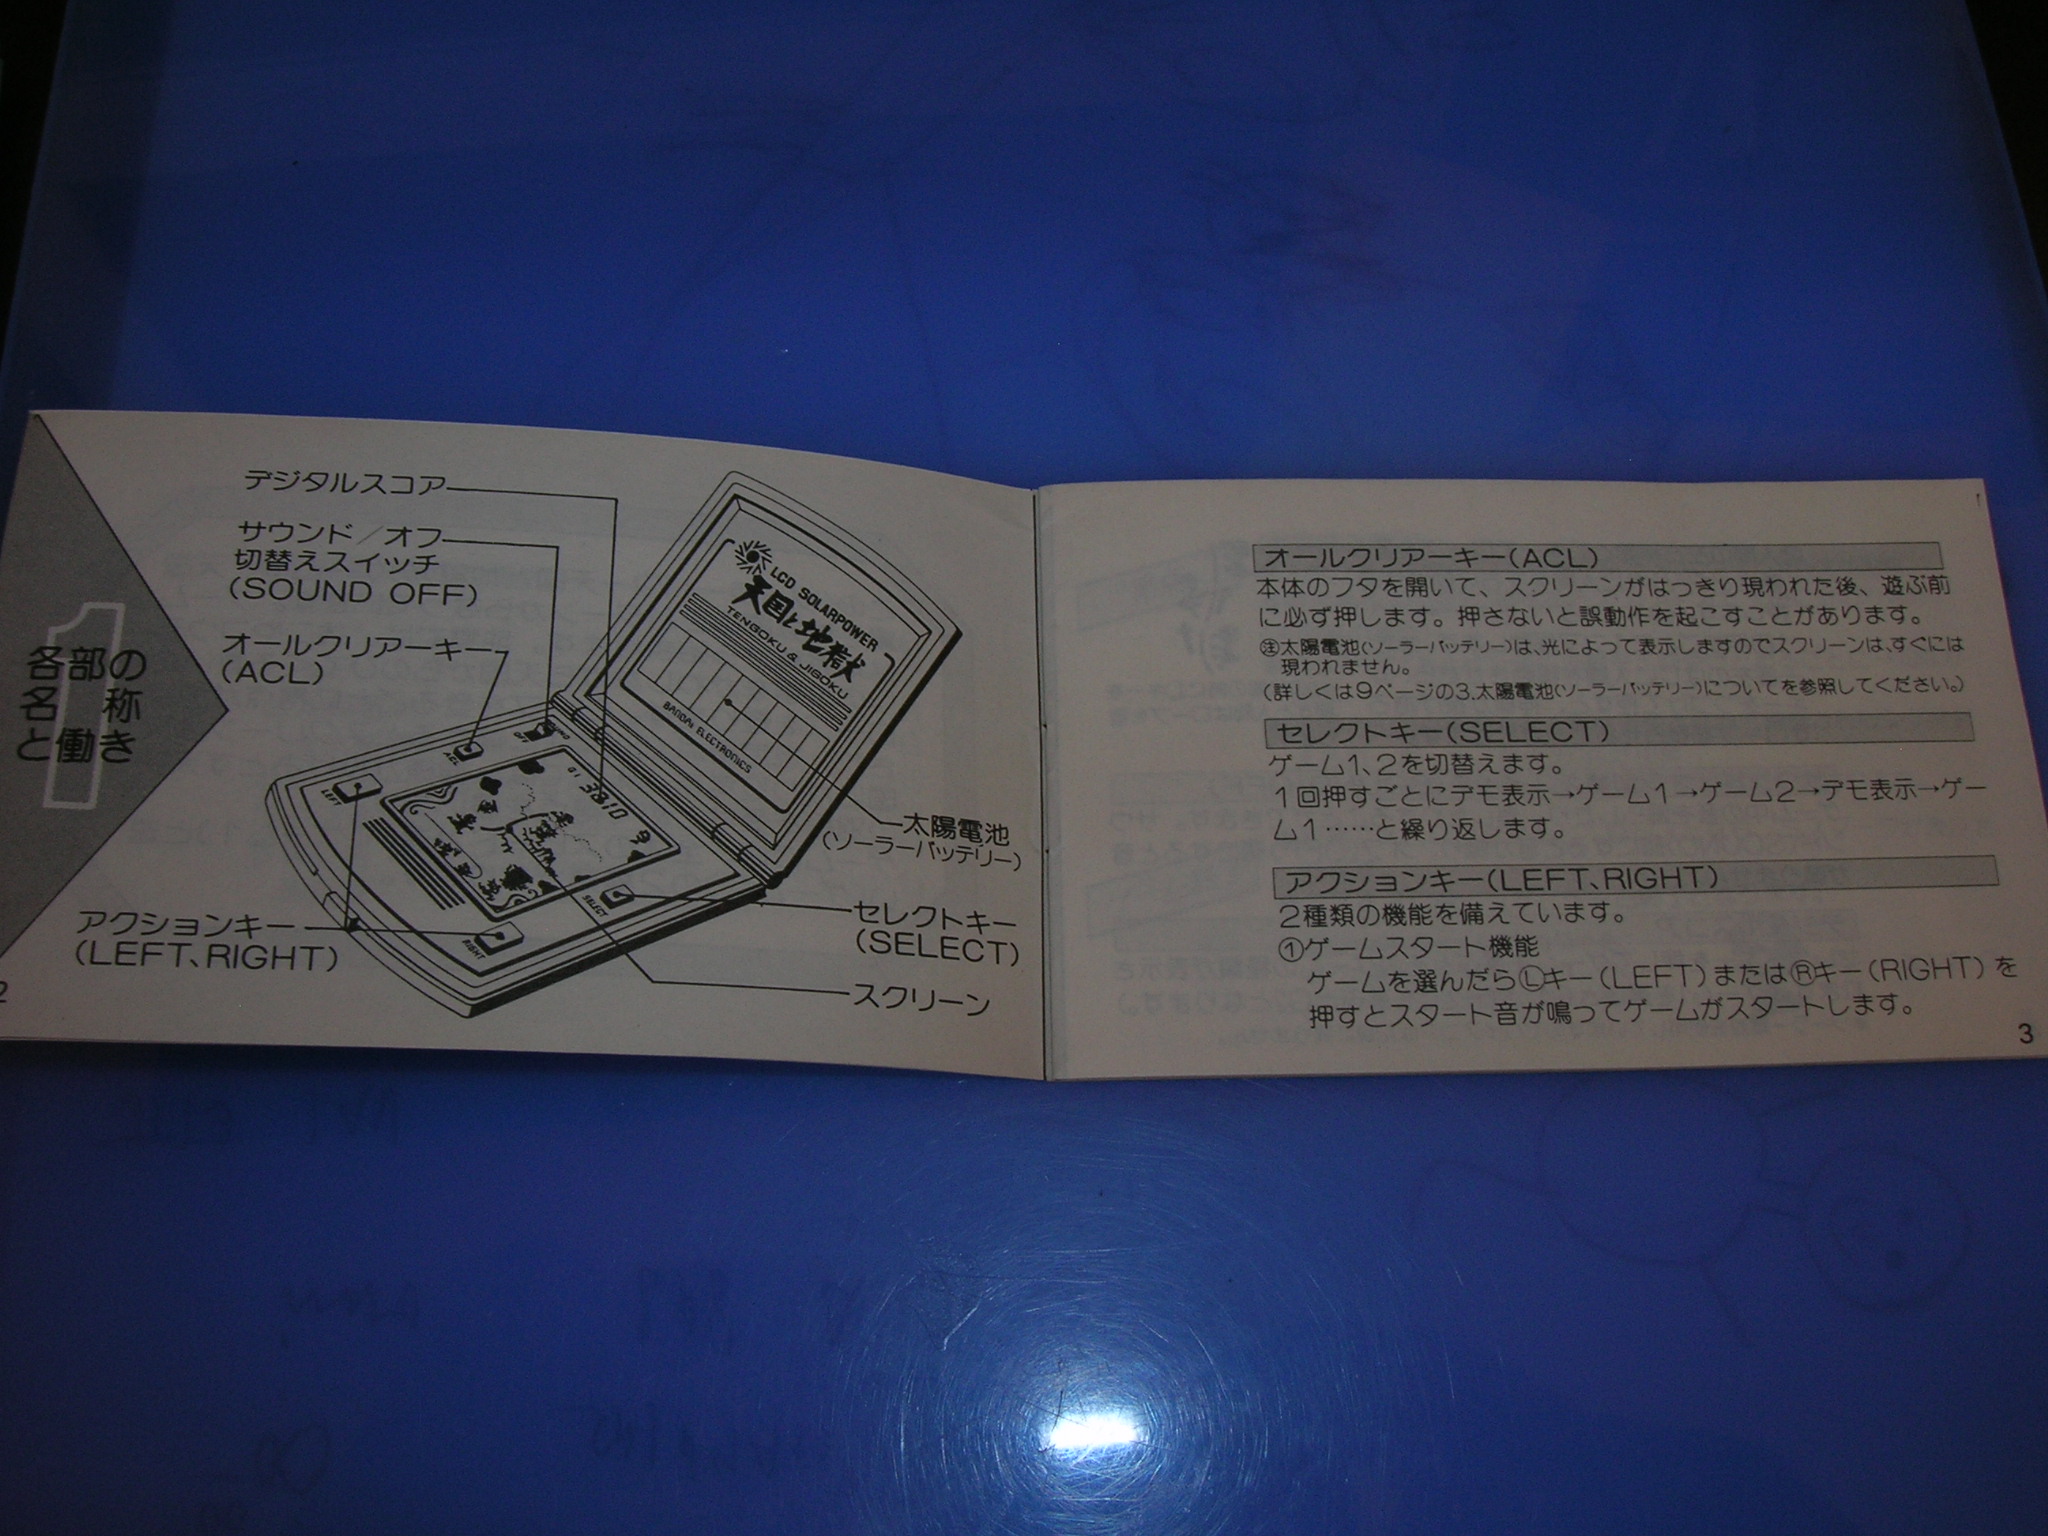 1
各部の
名　称
と働き
デジタルスコア
サウンド／オフ
切替えスイッチ
(SOUND OFF)
オールクリアーキー
(ACL)
アクションキー
(LEFT、RIGHT)
LCD SOLARPOWER
天国と地獄
TENGOKU & JIGOKU
BANDAI ELECTRONICS
SOUND
OFF
ACL
LEFT
SELECT
RIGHT
太陽電池
(ソーラーバッテリー)
セレクトキー
(SELECT)
スクリーン
2
オールクリアーキー(ACL)
本体のフタを開いて、スクリーンがはっきり現われた後、遊ぶ前
に必ず押します。押さないと誤動作を起こすことがあります。
㊟太陽電池(ソーラーバッテリー)は、光によって表示しますのでスクリーンは、すぐには
現われません。
(詳しくは9ページの3.太陽電池(ソーラーバッテリー)についてを参照してください。)
セレクトキー(SELECT)
ゲーム1、2を切替えます。
1回押すごとにデモ表示→ゲーム1→ゲーム2→デモ表示→ゲー
ム1……と繰り返します。
アクションキー(LEFT、RIGHT)
2種類の機能を備えています。
①ゲームスタート機能
ゲームを選んだらⓁキー(LEFT)またはⓇキー(RIGHT)を
押すとスタート音が鳴ってゲームがスタートします。
3